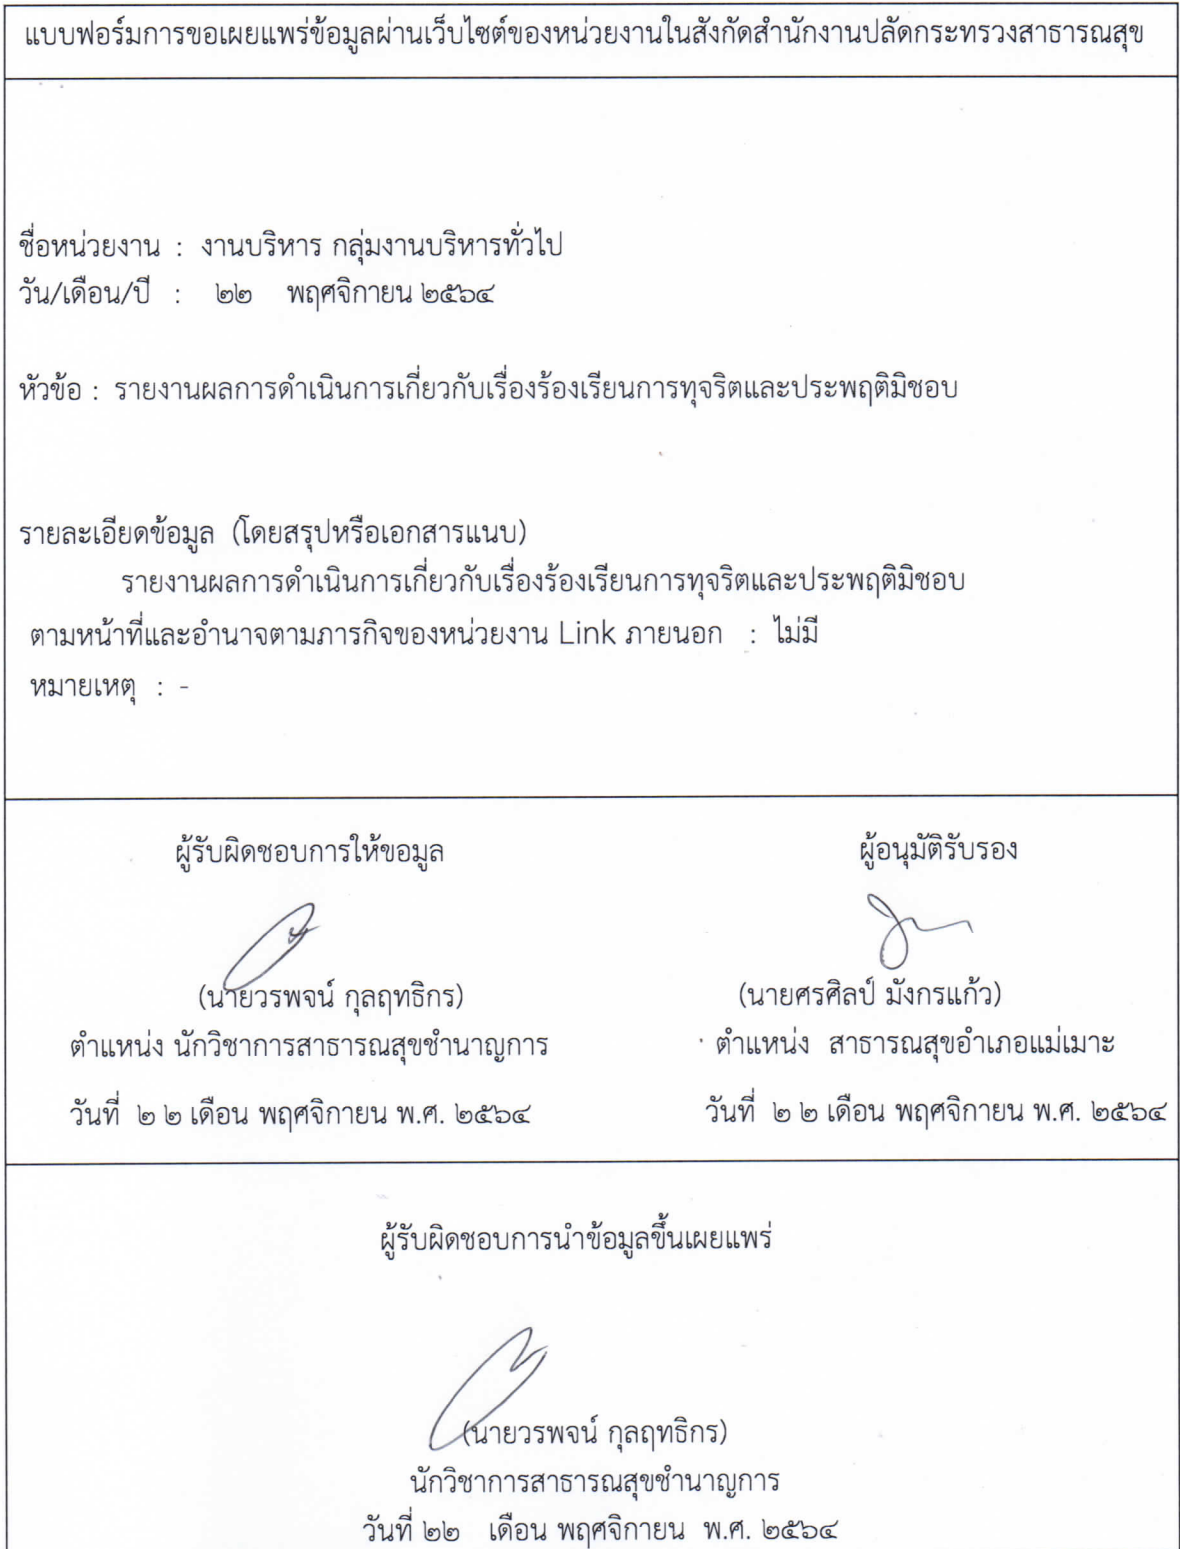 แบบฟอร์มการขอเผยแพร่ข้อมูลผ่านเว็บไซต์ของหน่วยงานในสังกัดสำนักงานปลัดกระทรวงสาธารณสุข
ชื่อหน่วยงาน : งานบริหาร กลุ่มงานบริหารทั่วไป
วัน/เดือน/ปี : ๒๒ พฤศจิกายน ๒๕๖๔
หัวข้อ : รายงานผลการดำเนินการเกี่ยวกับเรื่องร้องเรียนการทุจริตและประพฤติมิชอบ
รายละเอียดข้อมูล (โดยสรุปหรือเอกสารแนบ)
รายงานผลการดำเนินการเกี่ยวกับเรื่องร้องเรียนการทุจริตและประพฤติมิชอบ
ตามหน้าที่และอำนาจตามภารกิจของหน่วยงาน Link ภายนอก : ไม่มี
หมายเหตุ : -
ผู้รับผิดชอบการให้ขอมูล
(นายวรพจน์ กุลฤทธิกร)
ตำแหน่ง นักวิชาการสาธารณสุขชำนาญการ
วันที่ ๒ ๒ เดือน พฤศจิกายน พ.ศ. ๒๕๖๔
ผู้อนุมัติรับรอง
(นายศรศิลป์ มังกรแก้ว)
ตำแหน่ง สาธารณสุขอำเภอแม่เมาะ
วันที่ ๒ ๒ เดือน พฤศจิกายน พ.ศ. ๒๕๖๔
ผู้รับผิดชอบการนำข้อมูลขึ้นเผยแพร่
(นายวรพจน์ กุลฤทธิกร)
นักวิชาการสาธารณสุขชำนาญการ
วันที่ ๒๒ เดือน พฤศจิกายน พ.ศ. ๒๕๖๔